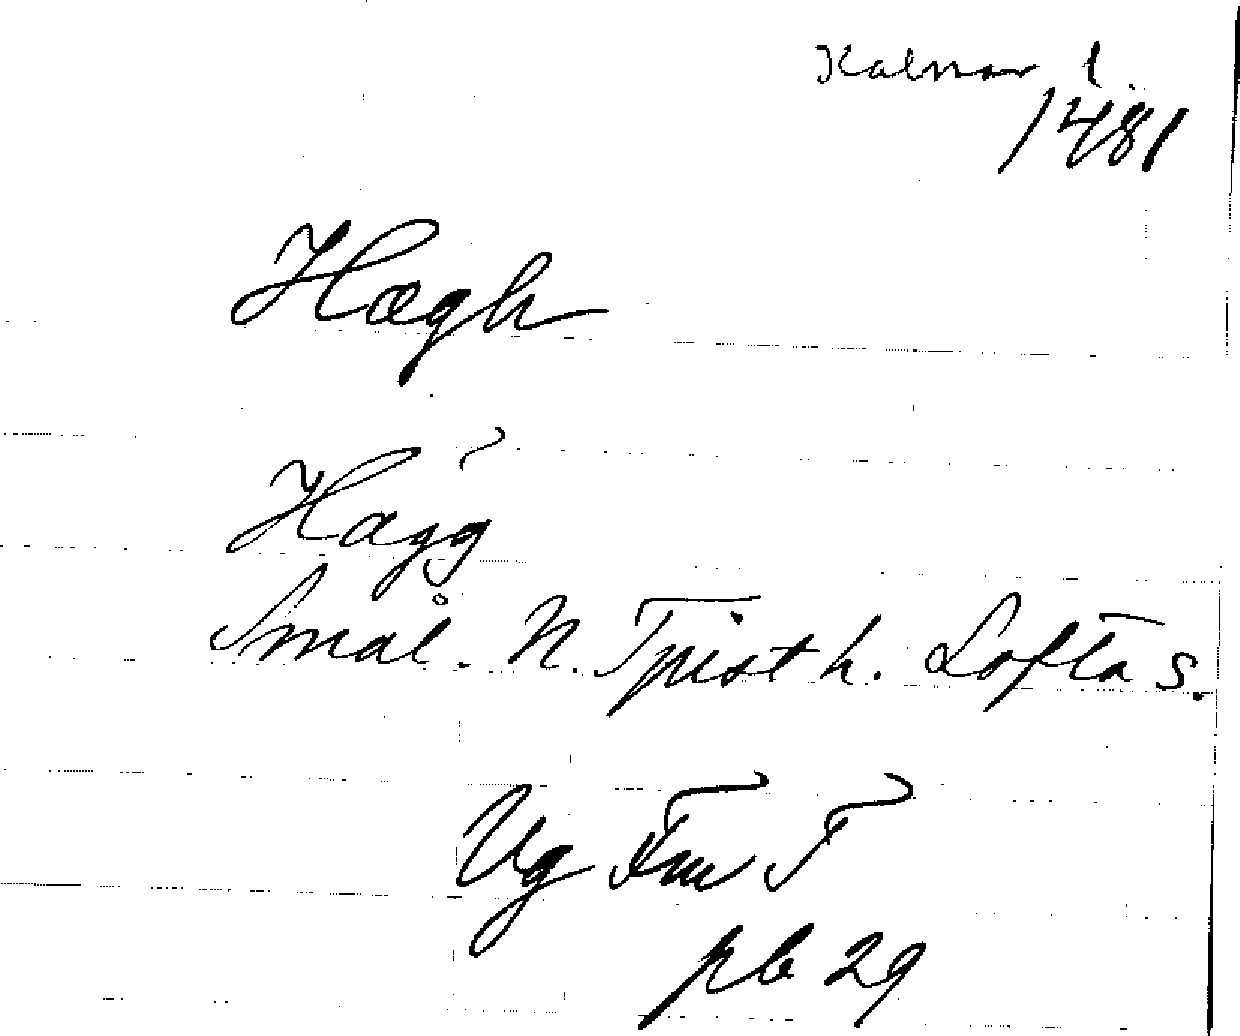 Kalmar l
1481
Hægh
Hägg
Smål. N. Tjust h. Lofta s.
Ug Fm T
pb 29